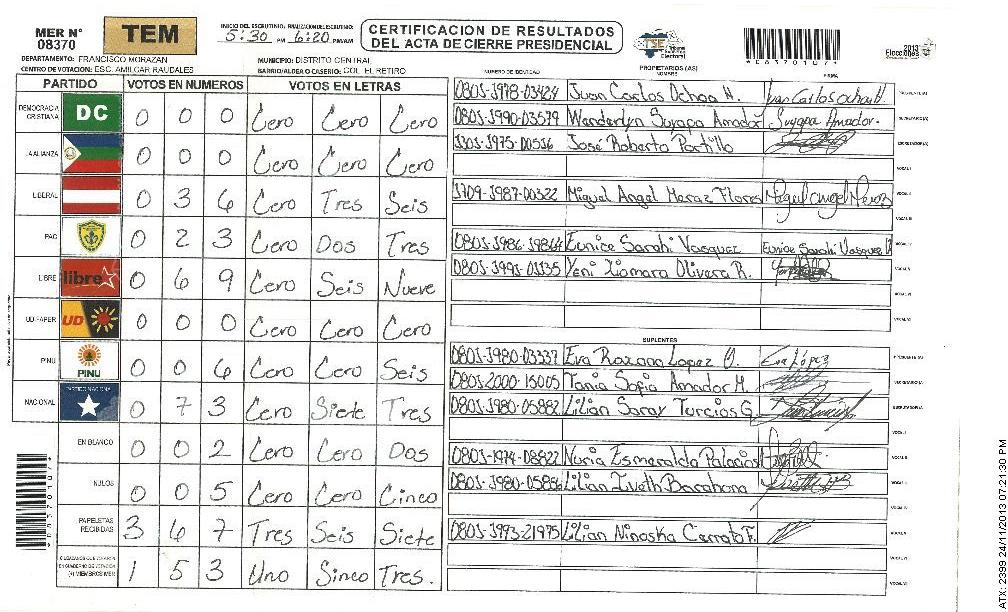 MER N° 08370
TEM
INICIO DEL ESCRUTINIO: 5:30 PM FINALIZACION DEL ESCRUTINIO: 6:20 PM/AM
CERTIFICACION DE RESULTADOS
DEL ACTA DE CIERRE PRESIDENCIAL
TSE Tribunal Supremo Electoral
2013 Elecciones
DEPARTAMENTO: FRANCISCO MORAZAN
MUNICIPIO: DISTRITO CENTRAL
CENTRO DE VOTACION: ESC. AMILCAR RAUDALES
BARRIO/ALDEA O CASERIO: COL. EL RETIRO
PARTIDO VOTOS EN NUMEROS VOTOS EN LETRAS
DEMOCRACIA CRISTIANA DC 0 0 0 Cero Cero Cero
ALIANZA 0 0 0 Cero Cero Cero
LIBERAL 0 3 6 Cero Tres Seis
PAC 0 2 3 Cero Dos Tres
LIBRE libre 0 6 9 Cero Seis Nueve
UD-FAPER UD 0 0 0 Cero Cero Cero
PINU PINU 0 0 6 Cero Cero Seis
NACIONAL PARTIDO NACIONAL 0 7 3 Cero Siete Tres
EN BLANCO 0 0 2 Cero Cero Dos
NULOS 0 0 5 Cero Cero Cinco
PAPELETAS RECIBIDAS 3 6 7 Tres Seis Siete
CIUDADANOS QUE VOTARON EN CUADERNO DE VOTACION (+) MIEMBROS MER 1 5 3 Uno Sinco Tres.
NUMERO DE IDENTIDAD PROPIETARIOS (AS) NOMBRE FIRMA
0801-1978-03424 Juan Carlos Ochoa H. Juan Carlos Ochoa H. PRESIDENTE(A)
0801-1990-03579 Wanderlyn Suyapa Amador Suyapa Amador. SECRETARIO(A)
1201-1975-00536 José Roberto Portillo ESCRUTADOR(A)
VOCAL I
1709-1987-00322 Miguel Angel Meraz Flores Miguel Angel Meraz VOCAL II
VOCAL III
0801-1986-19864 Eunice Sarahi Vasquez Eunice Sarahi Vasquez
0801-1991-01135 Yeni Xiomara Olivera R.
VOCAL VI
SUPLENTES
0801-1980-03337 Eva Roxana Lopez O. Eva López PRESIDENTE (A)
0801-2000-15005 Tania Sofia Amador M. SECRETARIO (A)
0801-1980-05882 Lilian Saray Turcios G. ESCRUTADOR(A)
VOCAL I
0801-1974-08822 Nuria Esmeralda Palacios VOCAL II
0801-1980-05886 Lilian Liveth Barahona
0801-1993-21975 Lilian Ninoska Cerrato F.
ATX: 2399 24/11/2013 07:21:30 PM